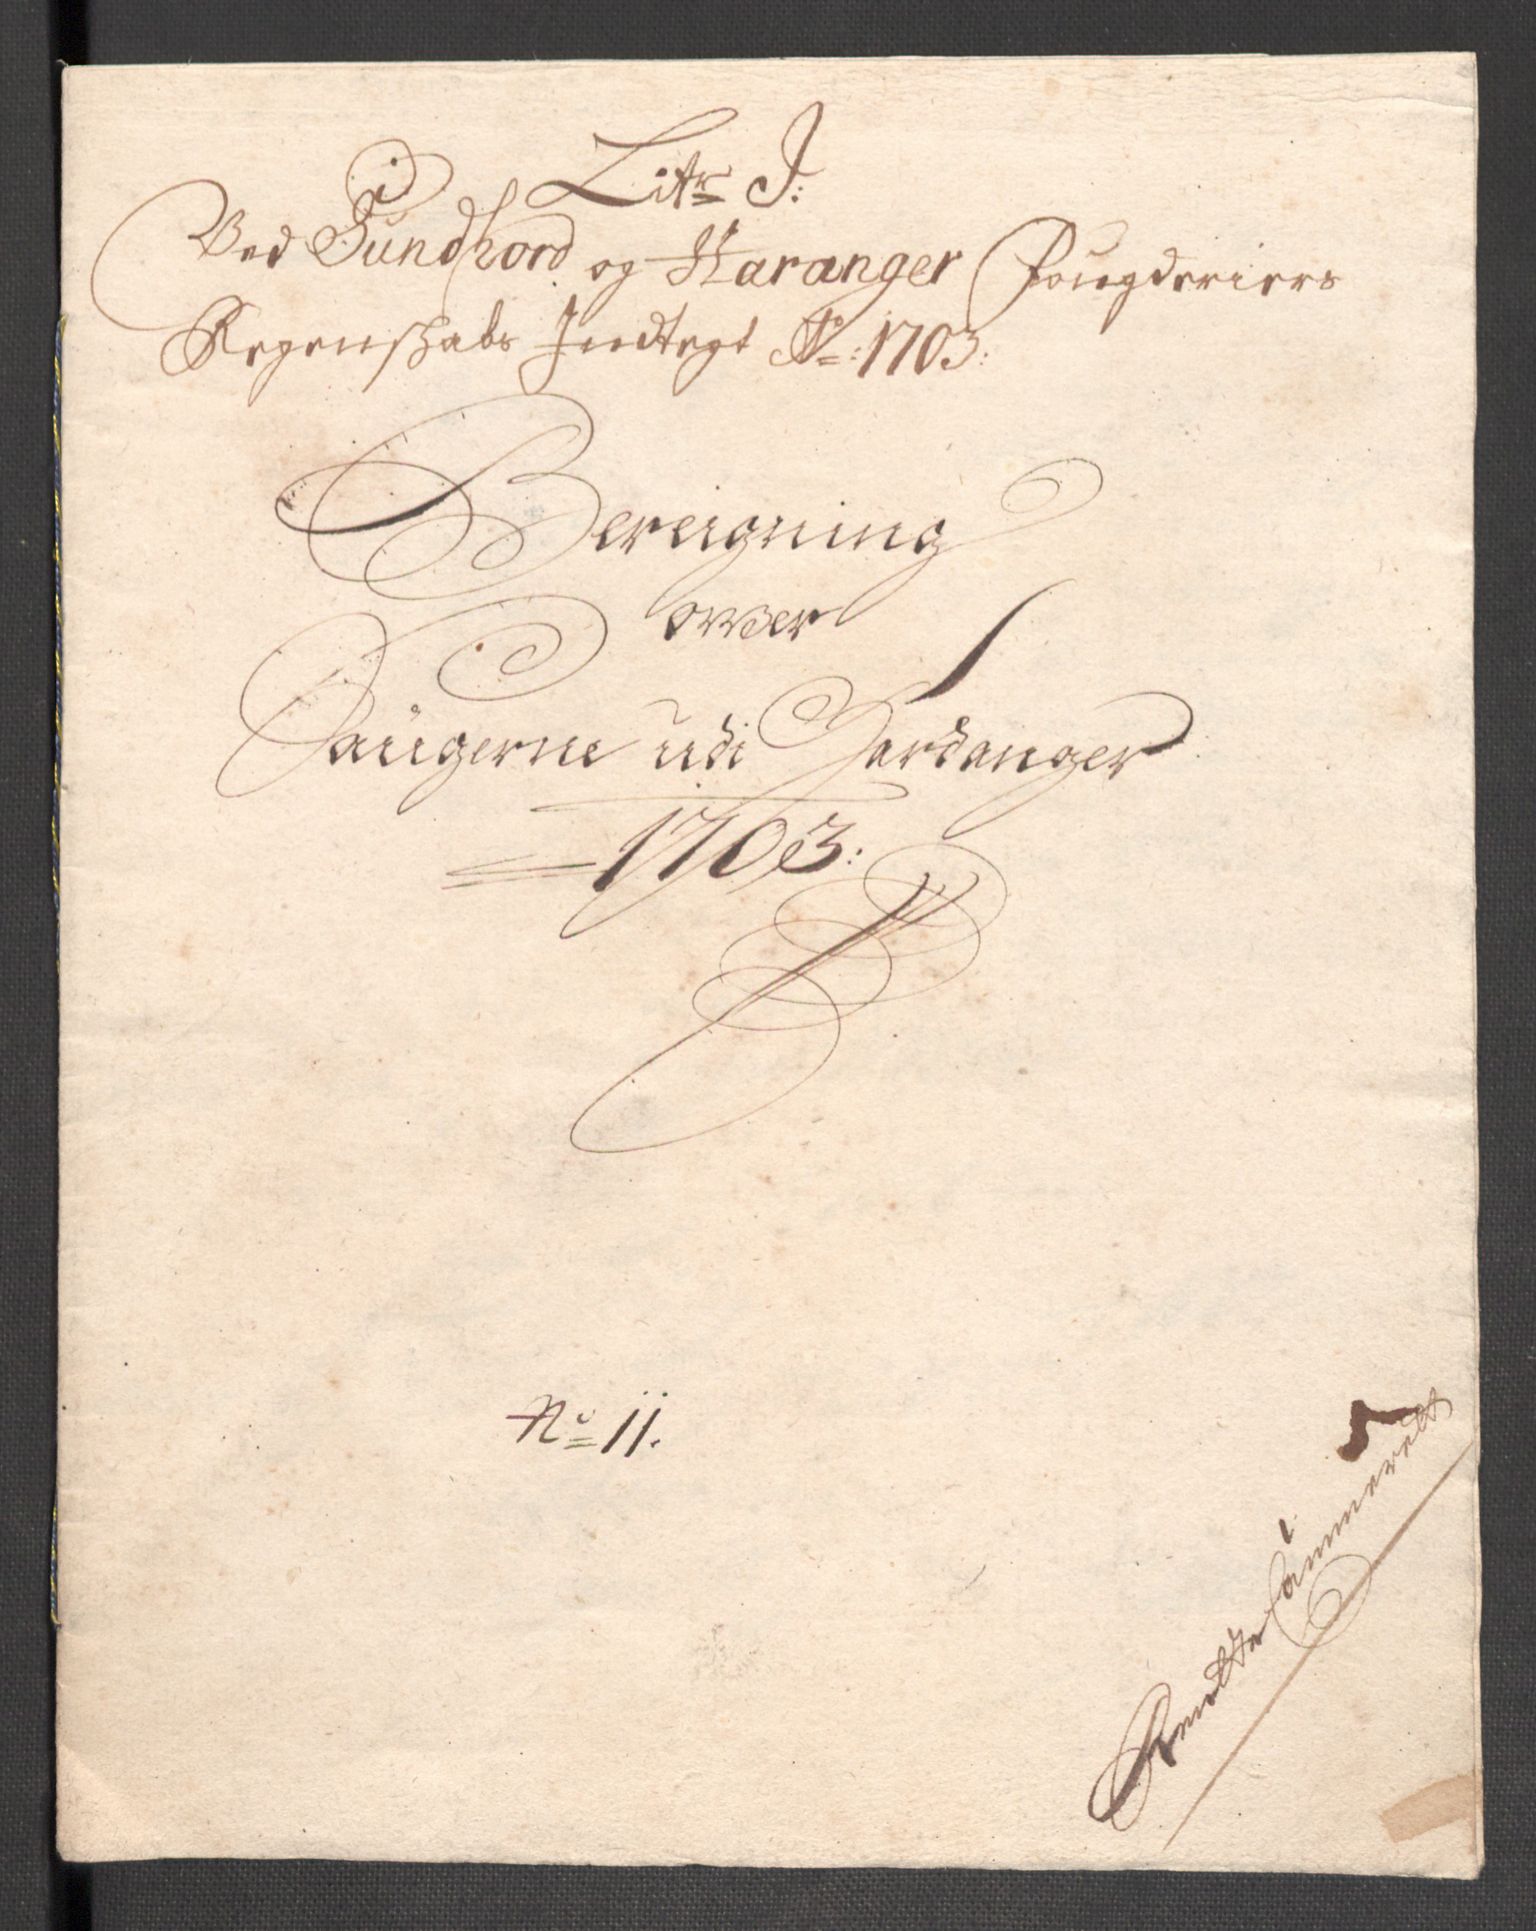 Litr J:
Ved Sundhord og Haranger Fougderiers
Regenskabs Indtegt Ao: 1703:
Bereigning
over
Saugerne udi Hardanger
1703:
No 11.
5
Rendte Cammeret